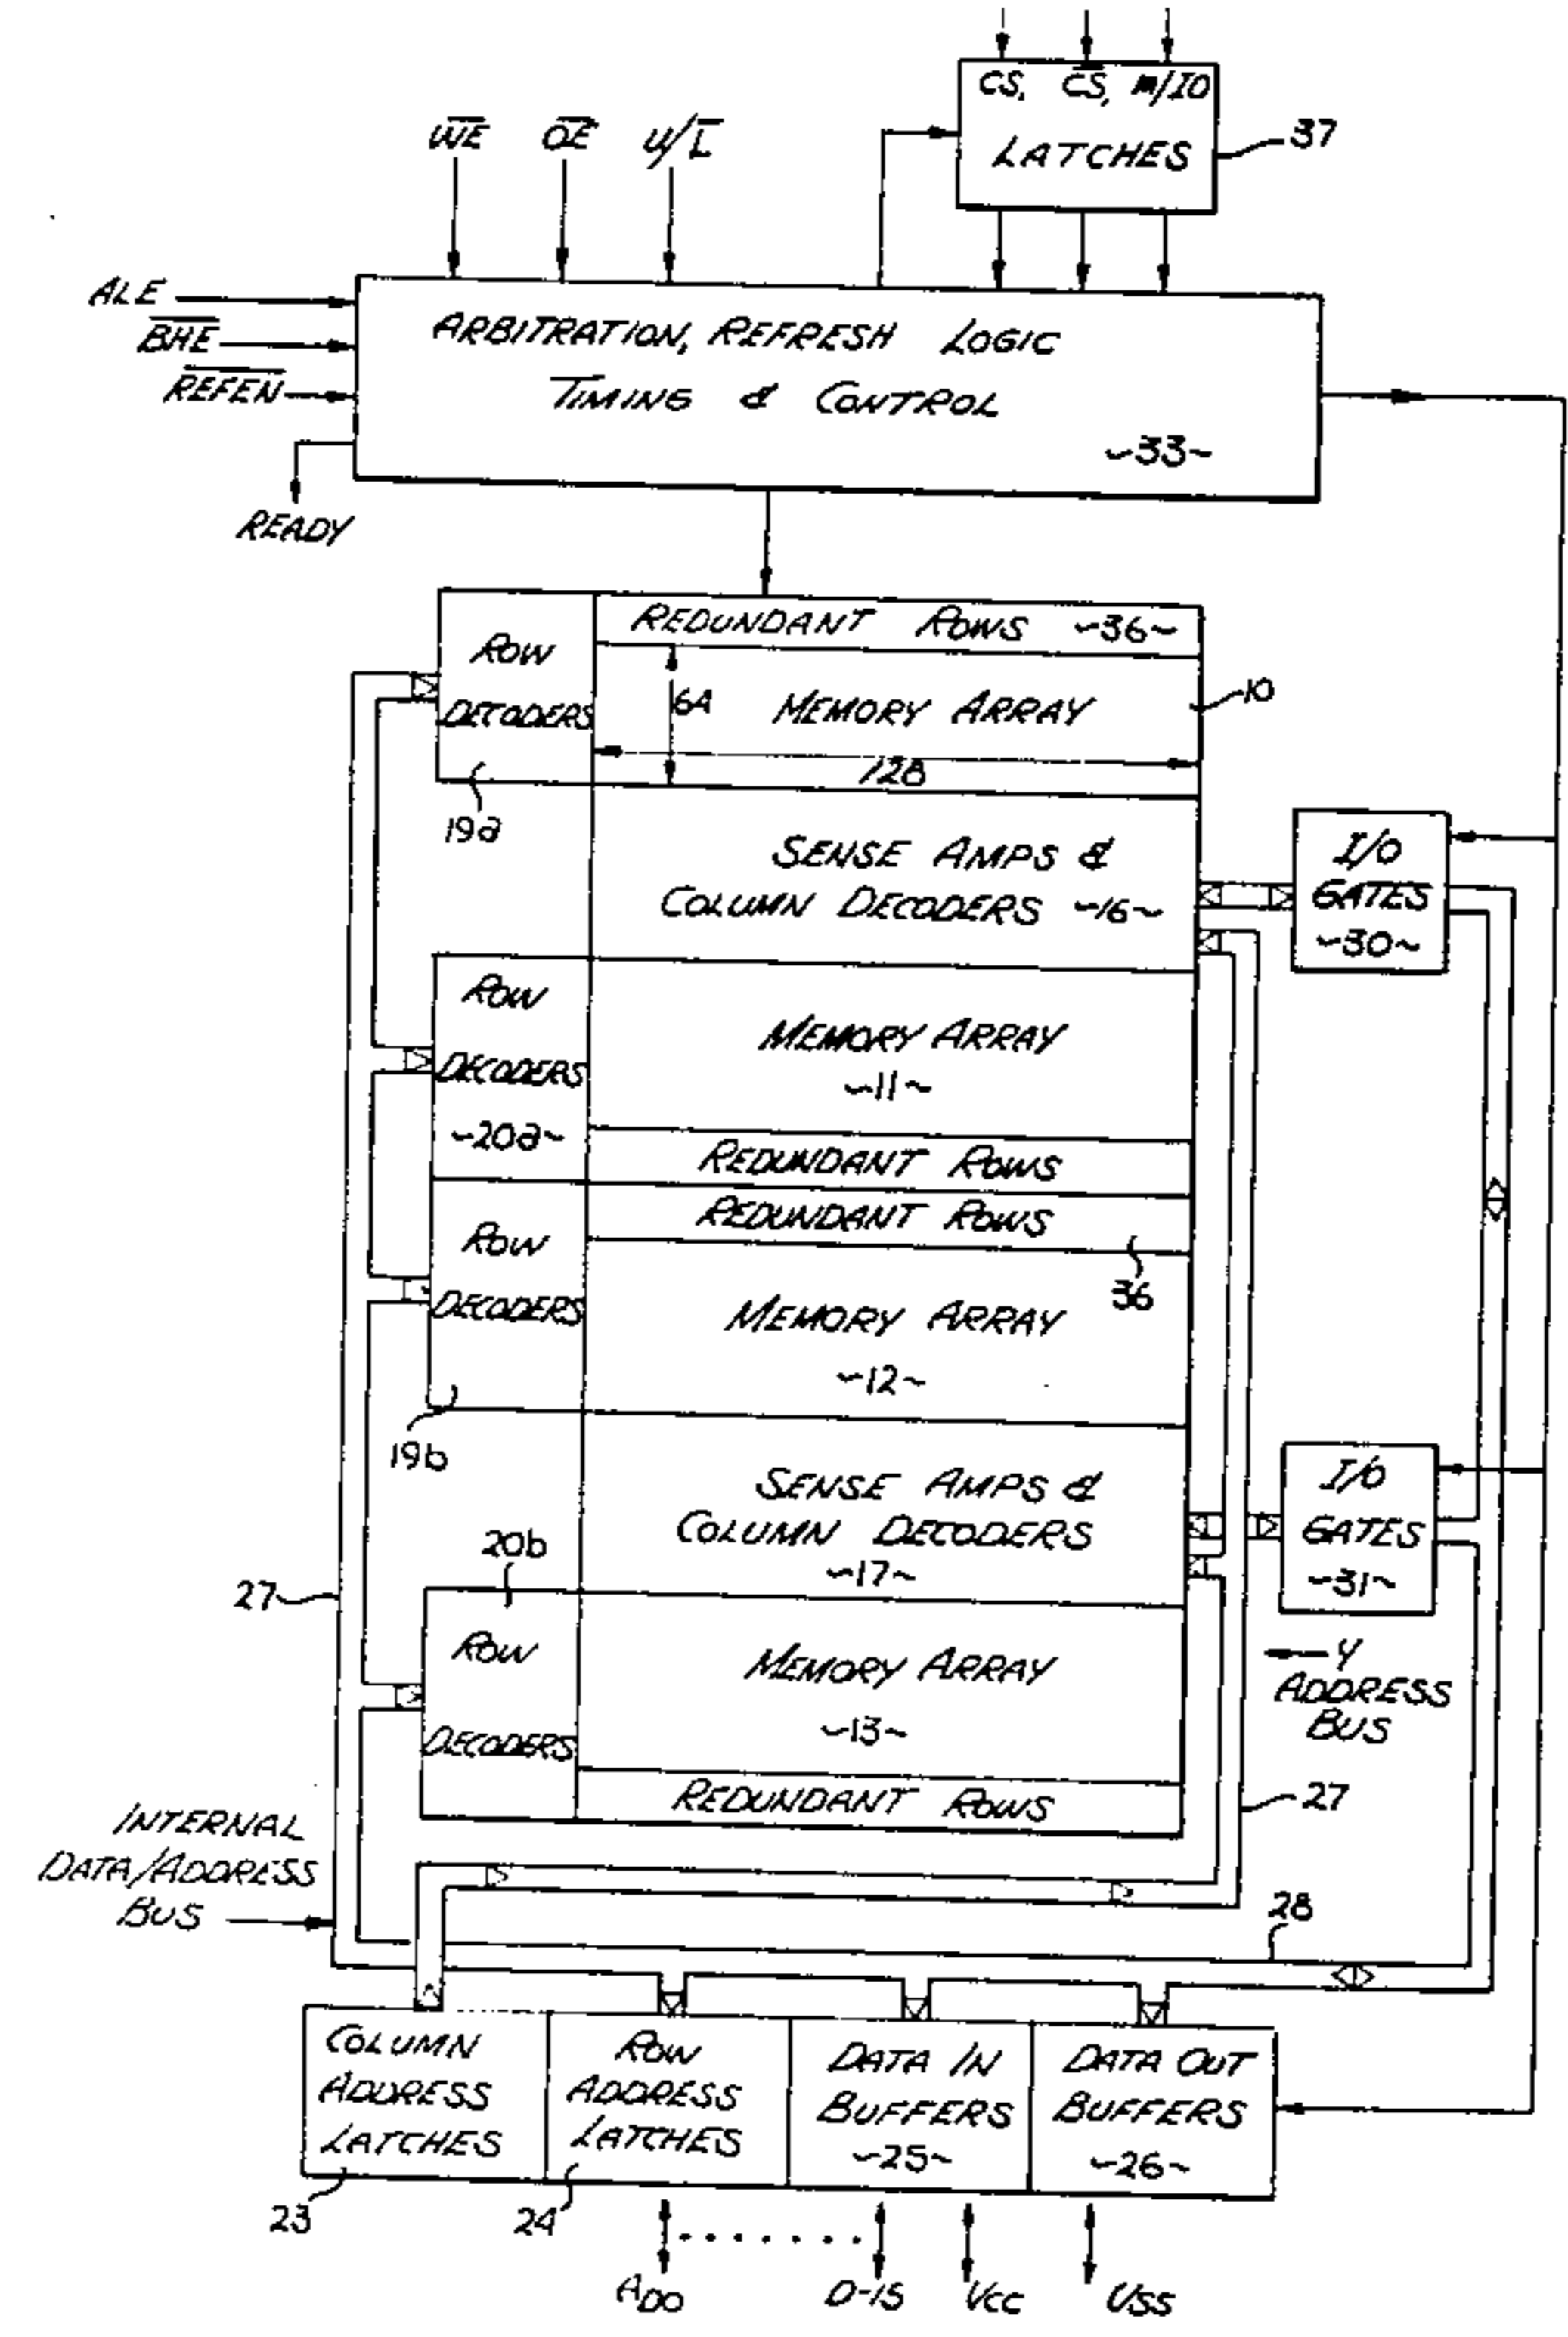 CS, C̅S̅, M/IO
LATCHES
37
W̅E̅ O̅E̅ U/L̅
ALE
B̅H̅E̅
R̅E̅F̅E̅N̅
READY
ARBITRATION, REFRESH LOGIC
TIMING & CONTROL
~33~
REDUNDANT ROWS ~36~
ROW
DECODERS
19a
64
MEMORY ARRAY
10
128
SENSE AMPS &
COLUMN DECODERS ~16~
I/O
GATES
~30~
ROW
DECODERS
~20a~
MEMORY ARRAY
~11~
REDUNDANT ROWS
REDUNDANT ROWS
36
ROW
DECODERS
19b
MEMORY ARRAY
~12~
SENSE AMPS &
COLUMN DECODERS
~17~
I/O
GATES
~31~
20b
27
ROW
DECODERS
MEMORY ARRAY
~13~
REDUNDANT ROWS
Y
ADDRESS
BUS
27
INTERNAL
DATA/ADDRESS
BUS
28
COLUMN
ADDRESS
LATCHES
23
ROW
ADDRESS
LATCHES
24
DATA IN
BUFFERS
~25~
DATA OUT
BUFFERS
~26~
AD0 D-15 VCC VSS